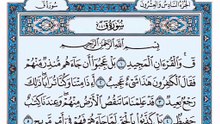 الجزء السادس والعشرون سورة ق
سُورَةُ قٓ
بِسْمِ ٱللَّهِ ٱلرَّحْمَٰنِ ٱلرَّحِيمِ
قٓ وَٱلْقُرْءَانِ ٱلْمَجِيدِ ١ بَلْ عَجِبُوٓا۟ أَن جَآءَهُم مُّنذِرٌ مِّنْهُمْ
فَقَالَ ٱلْكَٰفِرُونَ هَٰذَا شَىْءٌ عَجِيبٌ ٢ أَءِذَا مِتْنَا وَكُنَّا تُرَابًا ذَٰلِكَ
رَجْعٌۢ بَعِيدٌ ٣ قَدْ عَلِمْنَا مَا تَنقُصُ ٱلْأَرْضُ مِنْهُمْ وَعِندَنَا كِتَٰبٌ